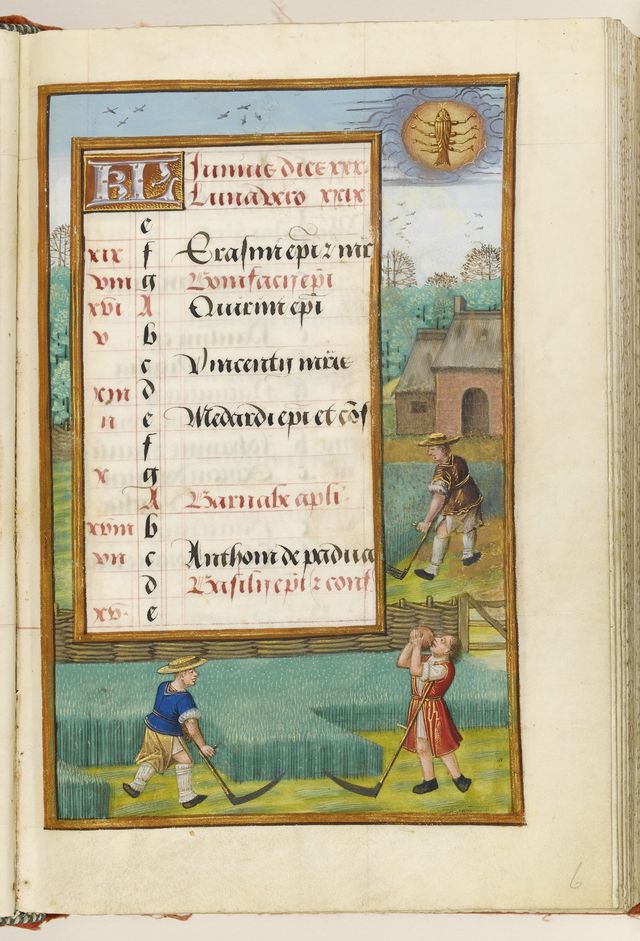 KL Junius dies xxx.
Luna vero xxix
e
xix f Erasmi epi z mr
viii g Bonifacij epi
xvi A Quirini epi
v b
c Vincentij mris
xiii d
ii e Medardi epi et cōf
f
x g
A Barnabe apli
xviii b
vii c Anthoni de padua
d Basilij epi z conf
xv. e
6